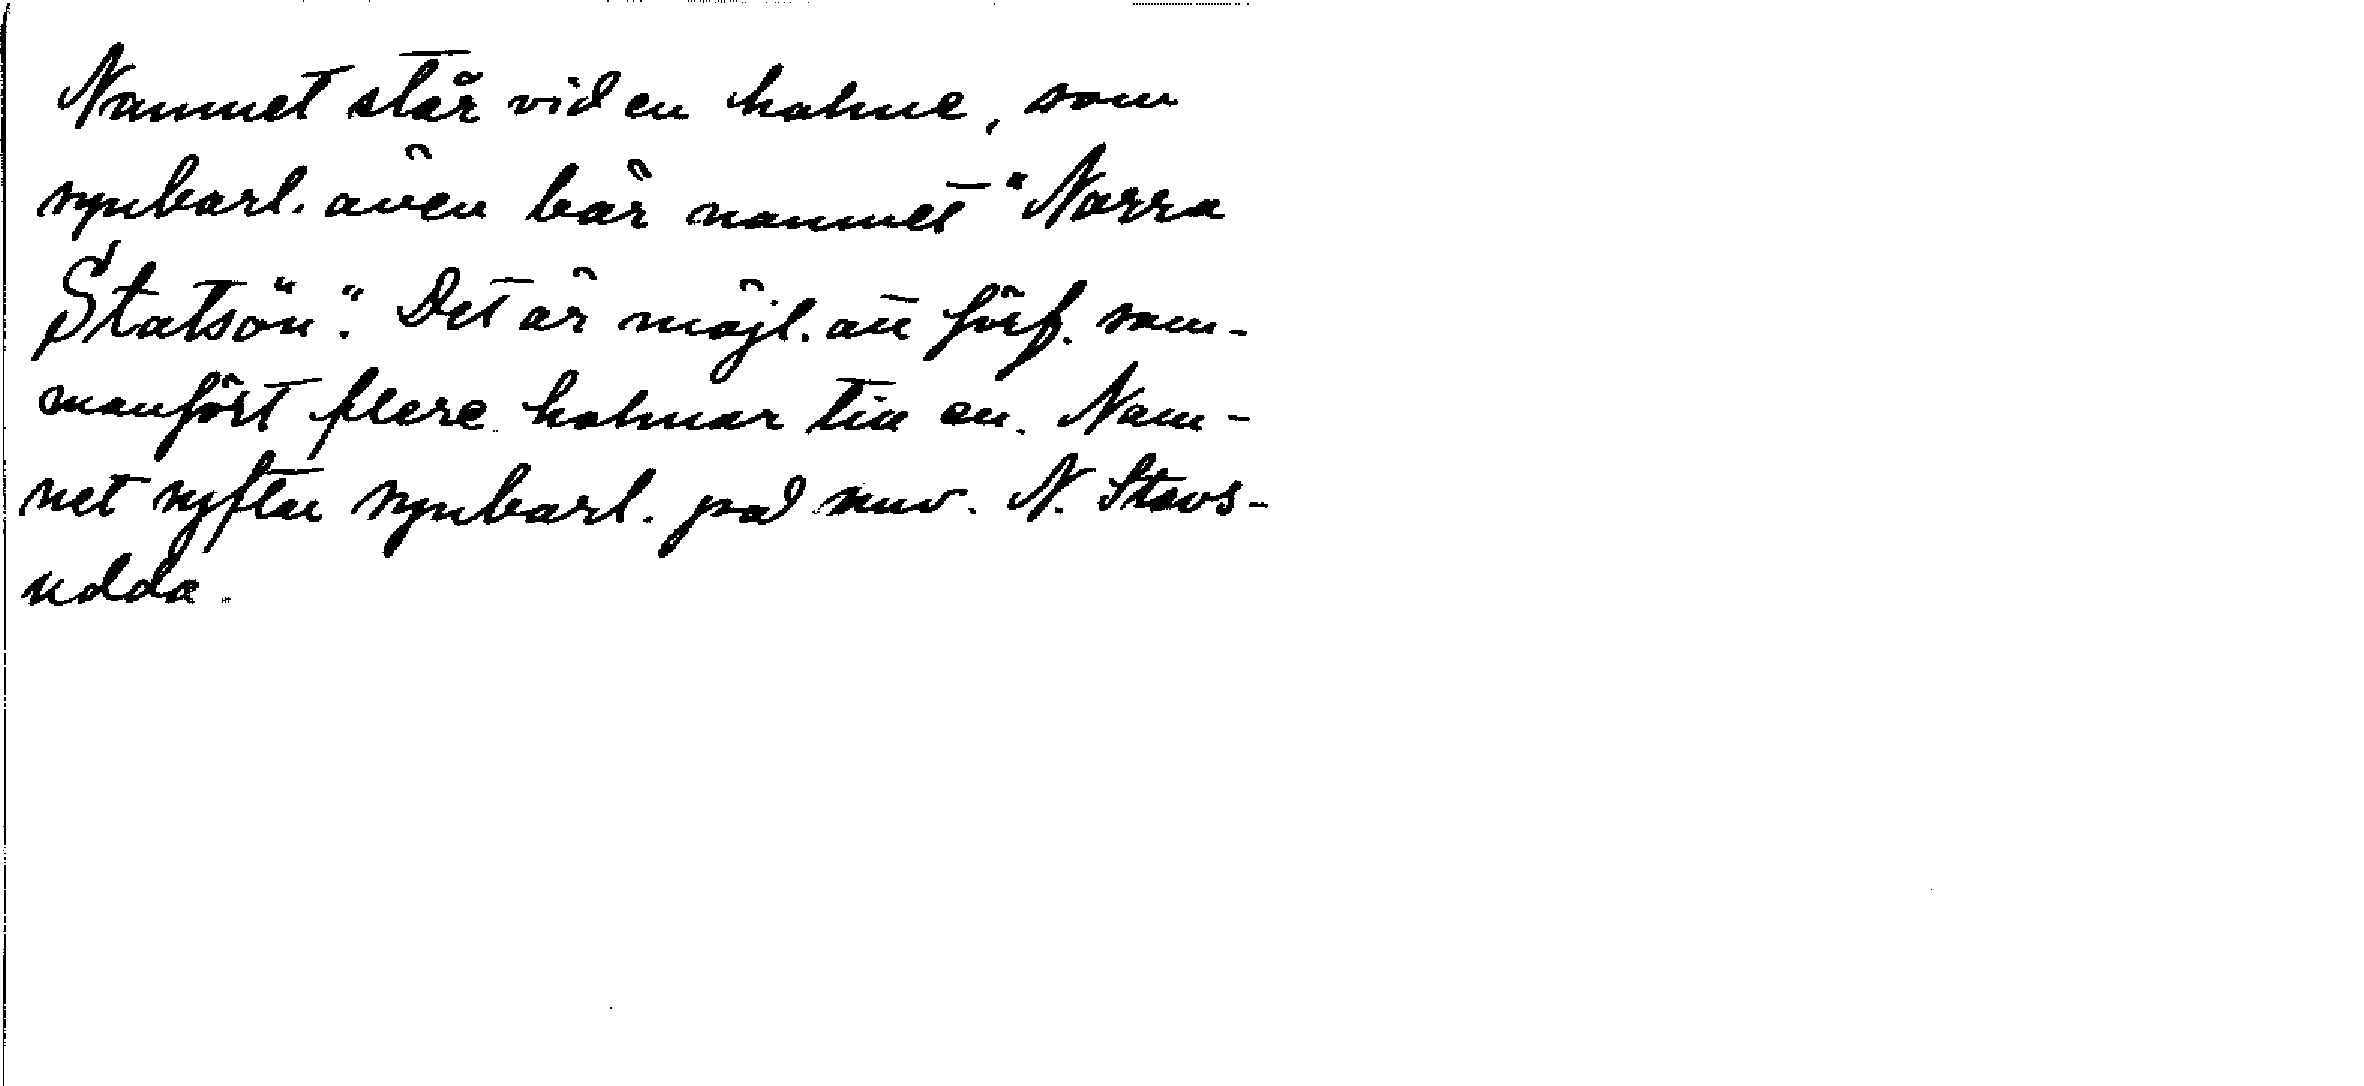 Namnet står vid en holme, som
synbarl. även bär namnet "Norra
Statsön". Det är möjl. att förf. sam-
manfört flere holmar till en. Nam-
net syftar synbarl. på nuv. N. Stavs-
udda.